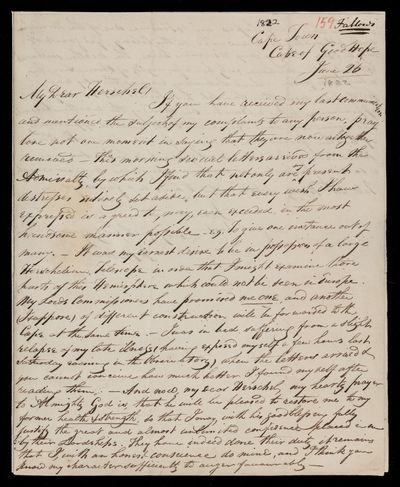 1822 159 Fallows
Cape Town
Cape of Good Hope
June 26
1822
My Dear Herschel
If you have received my last communication
and mentioned the subject of my complaints to any person, pray
lose not one moment in saying that they are now altogether
removed – This morning several letters arrived from the
Admiralty, by which I find that not only are present
distresses entirely set aside, but that every wish I have
expressed is agreed to, nay, even exceeded, in the most
handsome manner possible – e.g. to give one instance out of
many, – It was my earnest desire to be in possession of a large
Herschelian telescope in order that I might examine those
parts of this Hemisphere which could not be seen in Europe.
My Lords Commissioners have promised me one, and another
(I suppose) of different construction will be forwarded to the
Cape at the same time. – I was in bed suffering from a slight
relapse of my late illness (having exposed myself a few hours last
Saturday in the Observatory) when the letters arrived &
you cannot conceive how much better I found myself after
reading them. – And now, my dear Herschel, my hearty prayer
to Almighty God is, that he will be pleased to restore me to my
former health & strength, so that I may, with his good help, fully
justify the great and almost unlimited confidence placed in me
by their Lordships. They have indeed done their duty, it remains
that I with an honest conscience do mine, and I think you
know my character sufficiently to augur favourably –